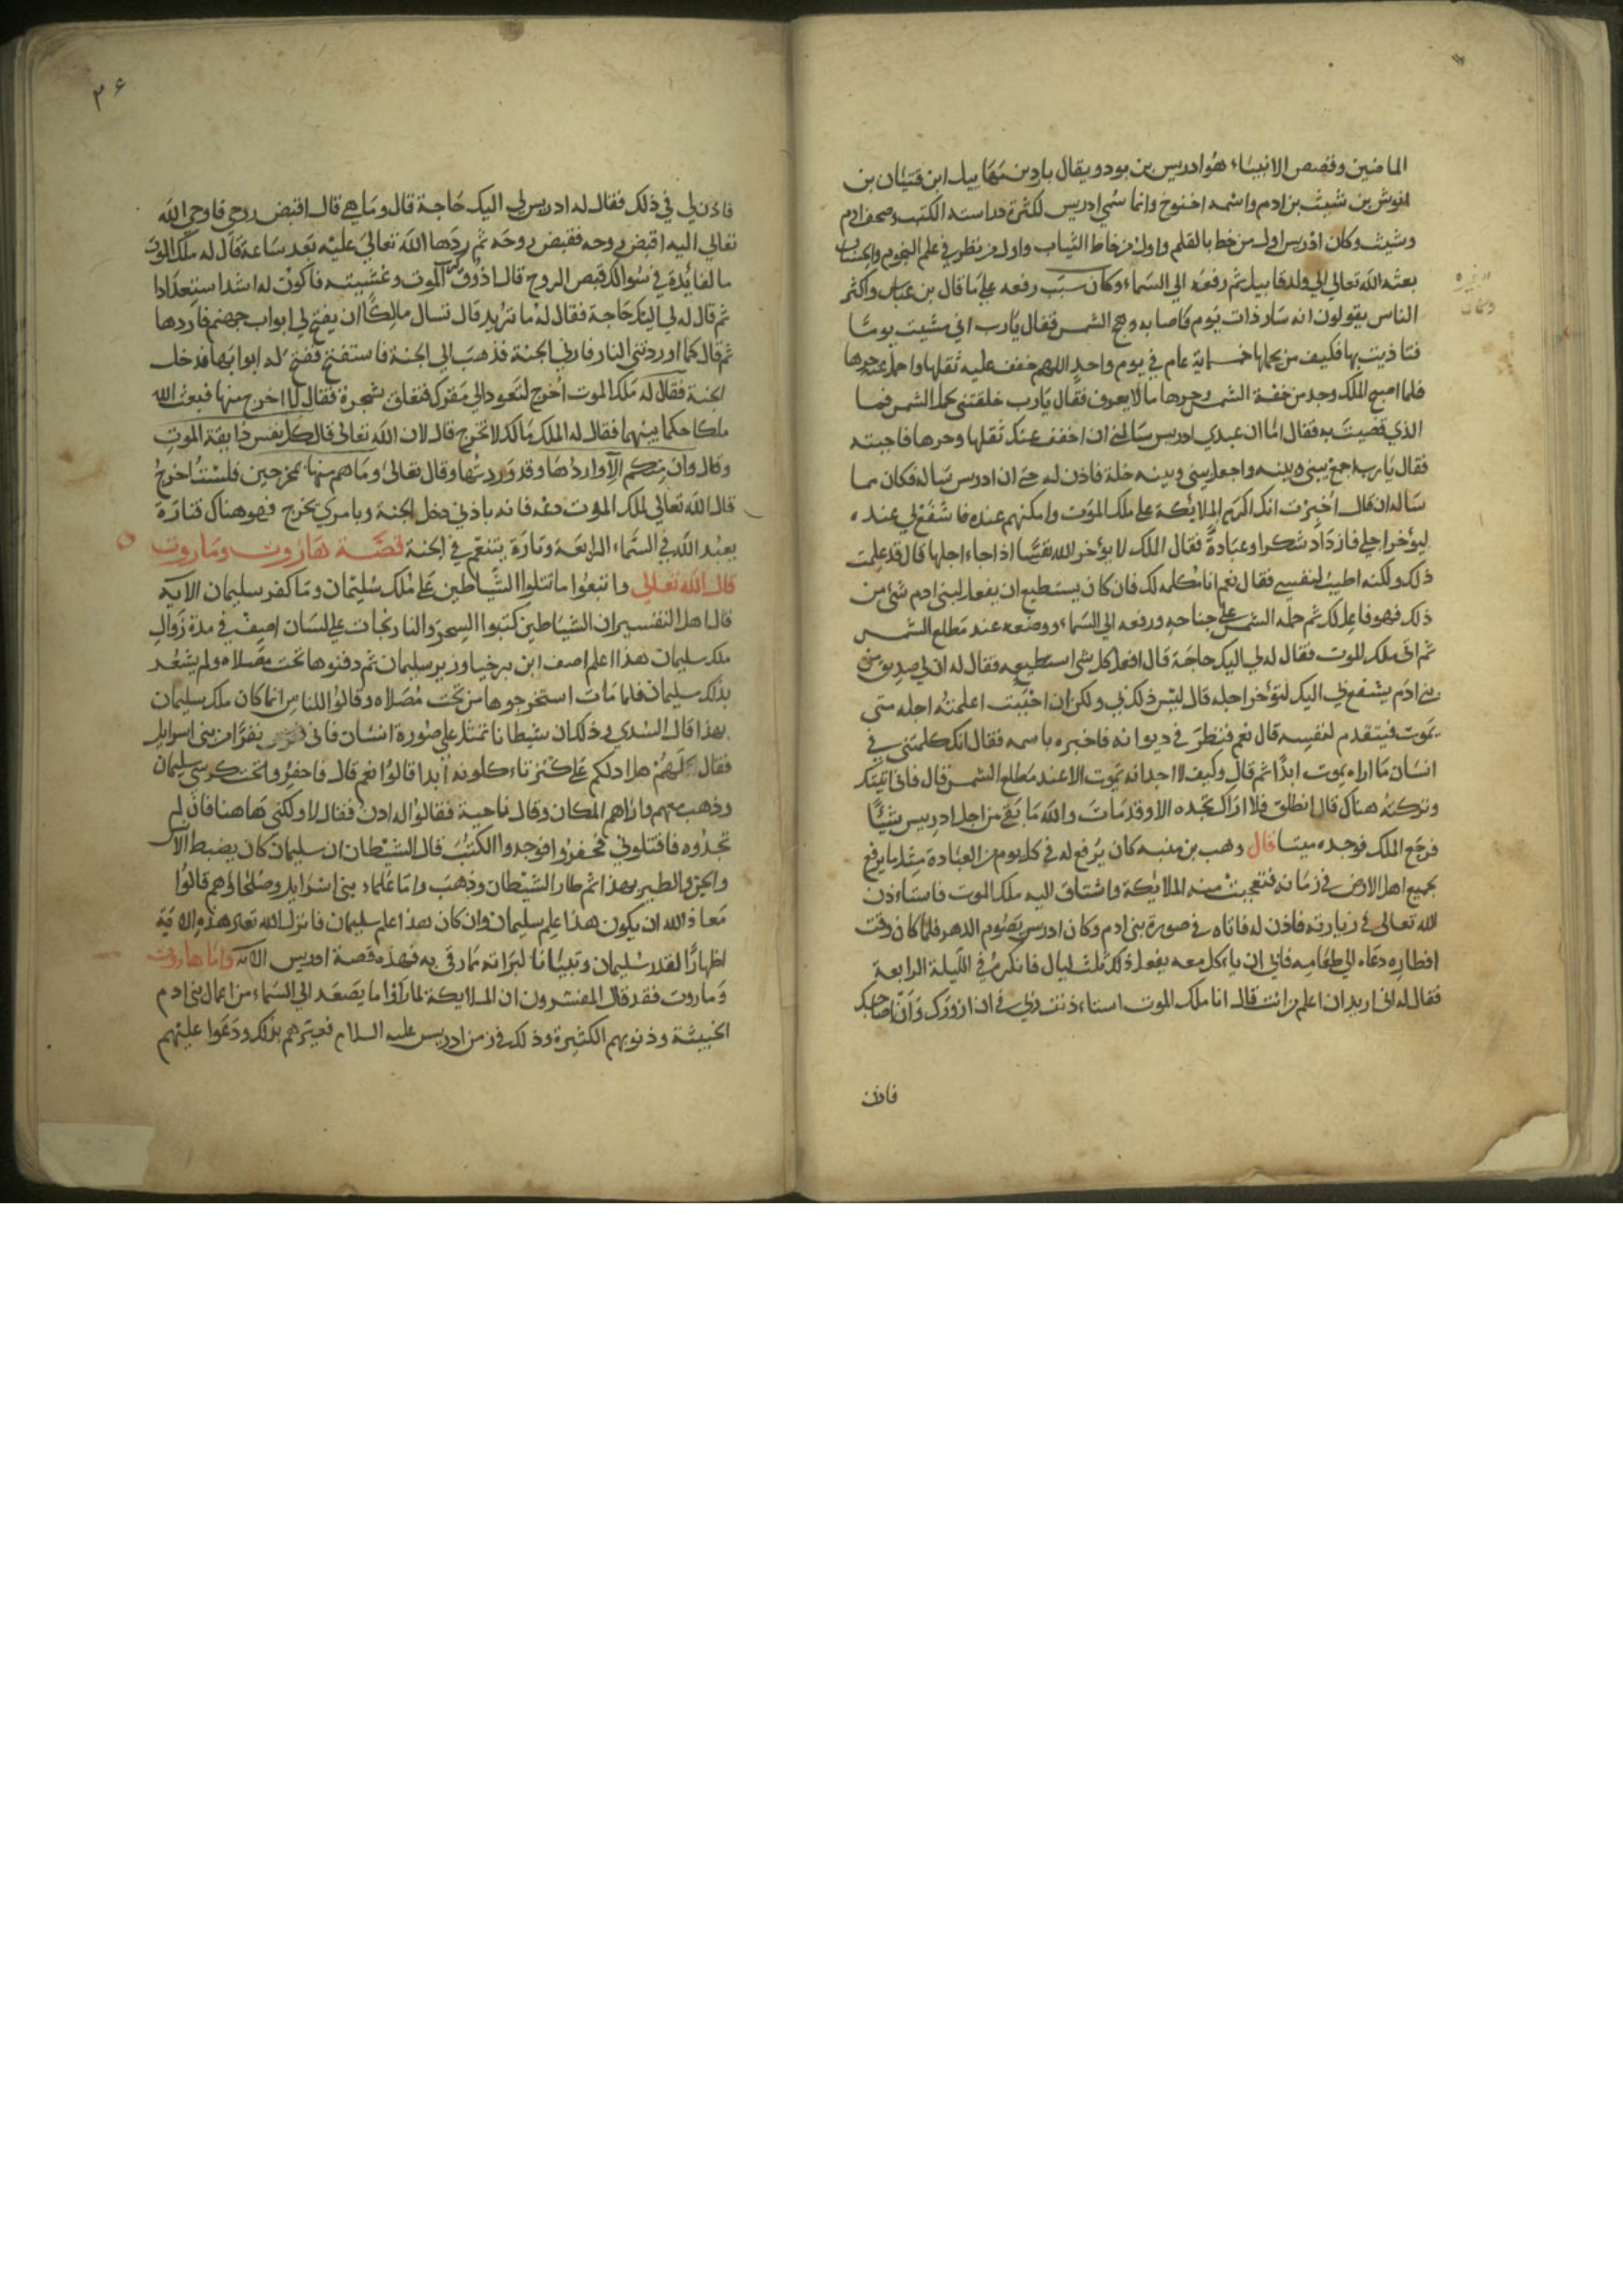 الماضين وقصص الانبياء هو ادريس بن يود ويقال يارد بن مهاييل ابن قتيان بن
انوش بن شيث بن ادم واسمه اخنوخ وانما سمي ادريس لكثرة دراسته الكتب وصحف ادم
وشيث وكان ادريس اول من خط بالقلم واول من خاط الثياب واول من نظر في علم النجوم والحساب
بعثه الله تعالى الي ولد قابيل ثم رفعه الي السماء وكان سبب رفعه على ما قال بن عباس واكثر
الناس يقولون انه سار ذات يوم فاصابه وهج الشمس فقال يارب اني مشيت يوما
فتاذيت بها فكيف من يحملها خمسماية عام في يوم واحد اللهم خفف عليه ثقلها واحمل عنه حرها
فلما اصبح الملك وجد من خفة الشمس وحرها ما لا يعرف فقال يارب خلقتني لحمل الشمس فما
الذي قضيت به فقال اما ان عبدي ادريس سالني ان اخفف عنك ثقلها وحرها فاجبته
فقال يارب اجمع بيني وبينه واجعل بيني وبينه خلة فاذن له حتى ان ادريس ساله فكان مما
ساله ان قال اخبرت انك اكرم الملائكة على ملك الموت وامكنهم عنده فاشفع لي عنده
ليؤخر اجلي فازداد شكرا وعبادة فقال الملك لا يؤخر الله نفسا اذا جاء اجلها قال قد علمت
ذلك ولكنه اطيب لنفسي فقال نعم انا مكلمه لك فان كان يستطيع ان يفعل لبني ادم شئ من
ذلك فهو فاعل لك ثم حمله الشمس على جناحه ورفعه الي السماء ووضعه عند مطلع الشمس
ثم اتى ملك الموت فقال له لي اليك حاجة قال افعل كل شئ استطيعه فقال له ان لي صديق من
بني ادم يشفع بي اليك لتؤخر اجله قال ليس ذلك لي ولكن ان احببت اعلمته اجله متى
يموت فيتقدم لنفسه قال نعم فنظر في ديوانه فاخبره باسمه فقال انك كلمتني في
انسان ما اراه يموت ابدا ثم قال وكيف لا اجد انه يموت الا عند مطلع الشمس قال فاني اتيتك
وتركته هناك قال انطلق فلا اراك تجده الا وقد مات والله ما بقي من اجل ادريس شيئا
فرجع الملك فوجده ميتا قال وهب بن منبه كان يرفع له في كل يوم من العبادة مثل ما يرفع
بجميع اهل الارض في زمانه فتعجبت منه الملائكة واشتاق اليه ملك الموت فاستاءذن
الله تعالى في زيارته فاذن له فاتاه في صورة بني ادم وكان ادريس يصوم الدهر فلما كان وقت
افطاره دعاه الي طعامه فابي ان ياءكل معه يفعل ذلك ثلث ليال فانكره في الليلة الرابعة
فقال له اني اريد ان اعلم من انت قال انا ملك الموت استاءذنت ربي في ان ازورك وان اصاحبك
فاذن
٣٤
فاذن لي في ذلك فقال له ادريس لي اليك حاجة قال وما هي قال اقبض روحي فاوحي الله
تعالي اليه اقبض روحه فقبض روحه ثم ردها الله تعالي عليه بعد ساعة قال له ملك الموت
ما الفائدة في سوالك قبض الروح قال اذوق كرب الموت وغشيته فاكون له اشد استعدادا
ثم قال له لي اليك حاجة فقال له ما تريد قال تسال مالكا ان يفتح لي ابواب جهنم فاردها
ثم قال كما اوردتني النار فارني الجنة فذهب الي الجنة فاستفتح ففتح له ابوابها فدخل
الجنة فقال له ملك الموت اخرج لتعود الي مقرك فتعلق بشجرة فقال لا اخرج منها فبعث الله
ملكا حكما بينهما فقال له الملك مالك لا تخرج قال لان الله تعالى قال كل نفس ذايقة الموت
وقال وان منكم الا واردها وقد وردتها وقال تعالى وما هم منها بمخرجين فلست اخرج
قال الله تعالي لملك الموت دعه فانه باذني دخل الجنة وبامري يخرج فهو هناك فتارة
يعبد الله في السماء الرابعة وتارة يتنعم في الجنة قصة هاروت وماروت
قال الله تعالي واتبعوا ما تتلوا الشياطين على ملك سليمان وما كفر سليمان الآية
قال اهل التفسير ان الشياطين كتبوا السحر والنارنجات علي لسان اصيف في مدة زوال
ملك سليمان هذا اعلم اصف ابن برخيا وزير سليمان ثم دفنوها تحت مصلاه ولم يشعر
بذلك سليمان فلما مات استخرجوها من تحت مصلاه وقالوا للناس انما كان ملك سليمان
بهذا قال السدي وذلك ان شيطانا تمثل علي صورة انسان فاتى نفرا من بني اسرايل
فقال لهم هل ادلكم على كنز تاءكلونه ابدا قالوا نعم قال فاحفروا تحت كرسي سليمان
وذهب بهم واراهم المكان وقال ناحية فقالوا له ادن فقال لا ولكني هاهنا فان لم
تجدوه فاقتلوني فحفروا فوجدوا الكتب قال الشيطان ان سليمان كان يضبط الانس
والجن والطير بهذا ثم طار الشيطان وذهب واما علماء بني اسرايل وصلحاؤهم قالوا
معاذ الله ان يكون هذا علم سليمان وان كان هذا علم سليمان فانزل الله تعالى هذه الاية
اظهارا لقدر سليمان وتبيانا لبراته مما رمي به فهذه قصة ادريس الآية واما هاروت
وماروت فقد قال المفسرون ان الملايكة لما راوا ما يصعد الي السماء من اعمال بني ادم
الخبيثة وذنوبهم الكثيرة وذلك في زمن ادريس عليه السلام فعيرهم بذلك ودعوا عليهم